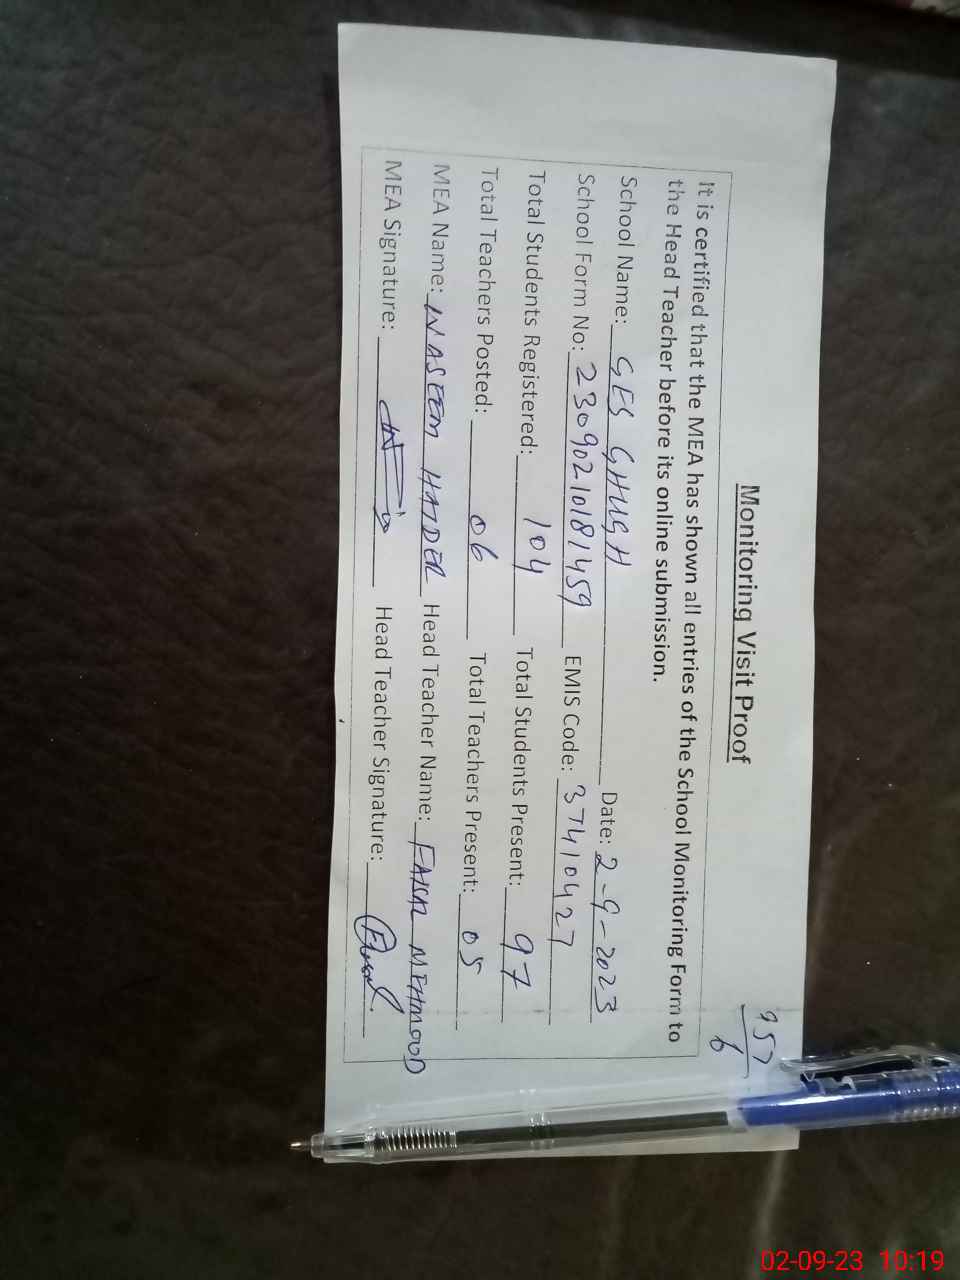 957
6
Monitoring Visit Proof
It is certified that the MEA has shown all entries of the School Monitoring Form to
the Head Teacher before its online submission.
School Name: GES GHUGH Date: 2-9-2023
School Form No: 2309021018 1459 EMIS Code: 37410427
Total Students Registered: 104 Total Students Present: 97
Total Teachers Posted: 06 Total Teachers Present: 05
MEA Name: WASEEM HAIDER Head Teacher Name: FAISAL MEHMOOD
MEA Signature: Head Teacher Signature:
02-09-23 10:19